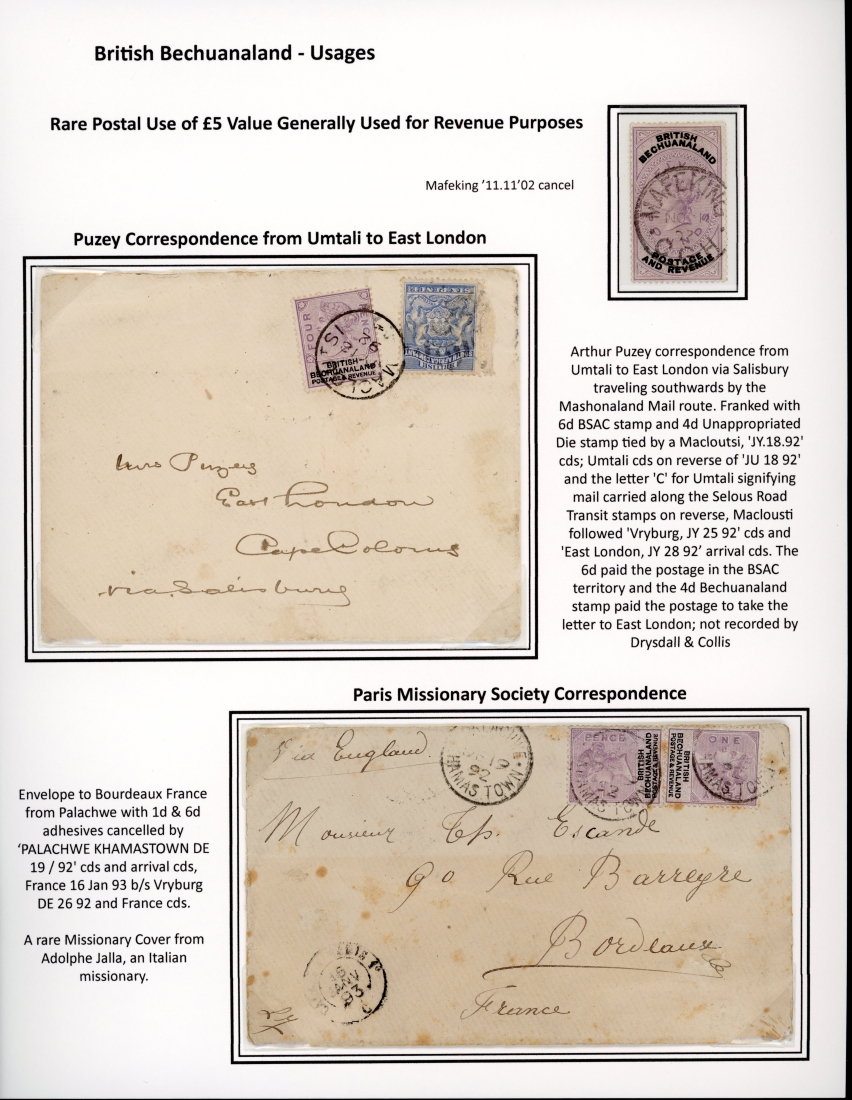 British Bechuanaland - Usages
Rare Postal Use of £5 Value Generally Used for Revenue Purposes
Mafeking '11.11'02 cancel
BRITISH
BECHUANALAND
MAFEKING
POSTAGE
AND REVENUE
Puzey Correspondence from Umtali to East London
FOUR
BRITISH-
BECHUANALAND
POSTAGE & REVENUE
SIXPENCE
Mrs Puzey
East London
Cape Colony
via Salisbury
Arthur Puzey correspondence from
Umtali to East London via Salisbury
traveling southwards by the
Mashonaland Mail route. Franked with
6d BSAC stamp and 4d Unappropriated
Die stamp tied by a Macloutsi, 'JY.18.92'
cds; Umtali cds on reverse of 'JU 18 92'
and the letter 'C' for Umtali signifying
mail carried along the Selous Road
Transit stamps on reverse, Maclousti
followed 'Vryburg, JY 25 92' cds and
'East London, JY 28 92’ arrival cds. The
6d paid the postage in the BSAC
territory and the 4d Bechuanaland
stamp paid the postage to take the
letter to East London; not recorded by
Drysdall & Collis
Paris Missionary Society Correspondence
Via England
92
HAMAS TOWN
PENCE
BRITISH
BECHUANALAND
POSTAGE & REVENUE
BRITISH
BECHUANALAND
POSTAGE & REVENUE
ONE
HAMAS TOWN
Monsieur Th. Escande
90 Rue Barreyre
Bordeaux
France
Envelope to Bourdeaux France
from Palachwe with 1d & 6d
adhesives cancelled by
‘PALACHWE KHAMASTOWN DE
19 / 92' cds and arrival cds,
France 16 Jan 93 b/s Vryburg
DE 26 92 and France cds.
A rare Missionary Cover from
Adolphe Jalla, an Italian
missionary.